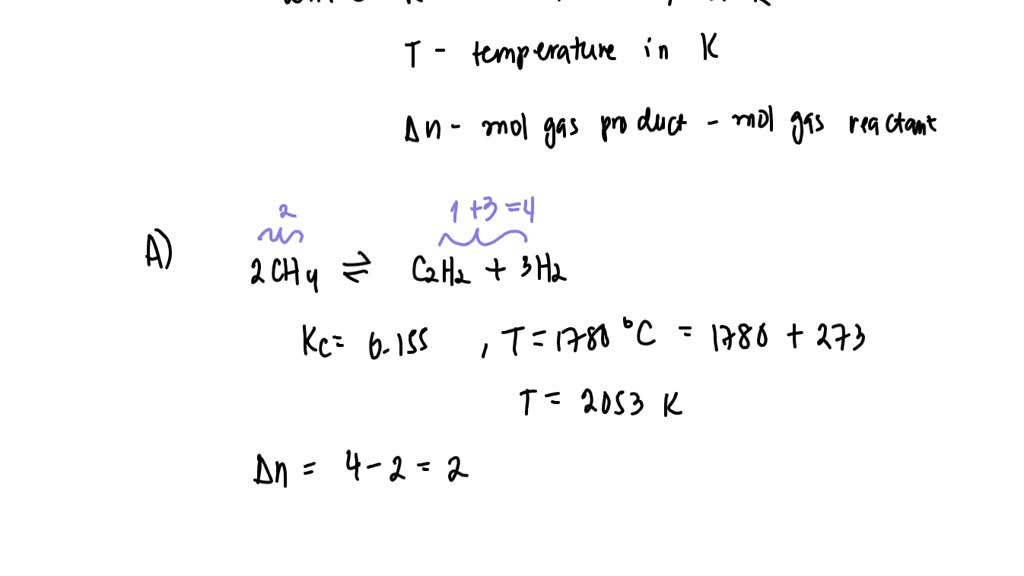 T - temperature in K
Δn - mol gas product - mol gas reactant
2
1 + 3 = 4
A)
2CH4 ⇌ C2H2 + 3H2
Kc = 0.155 , T = 1780 °C = 1780 + 273
T = 2053 K
Δn = 4 - 2 = 2